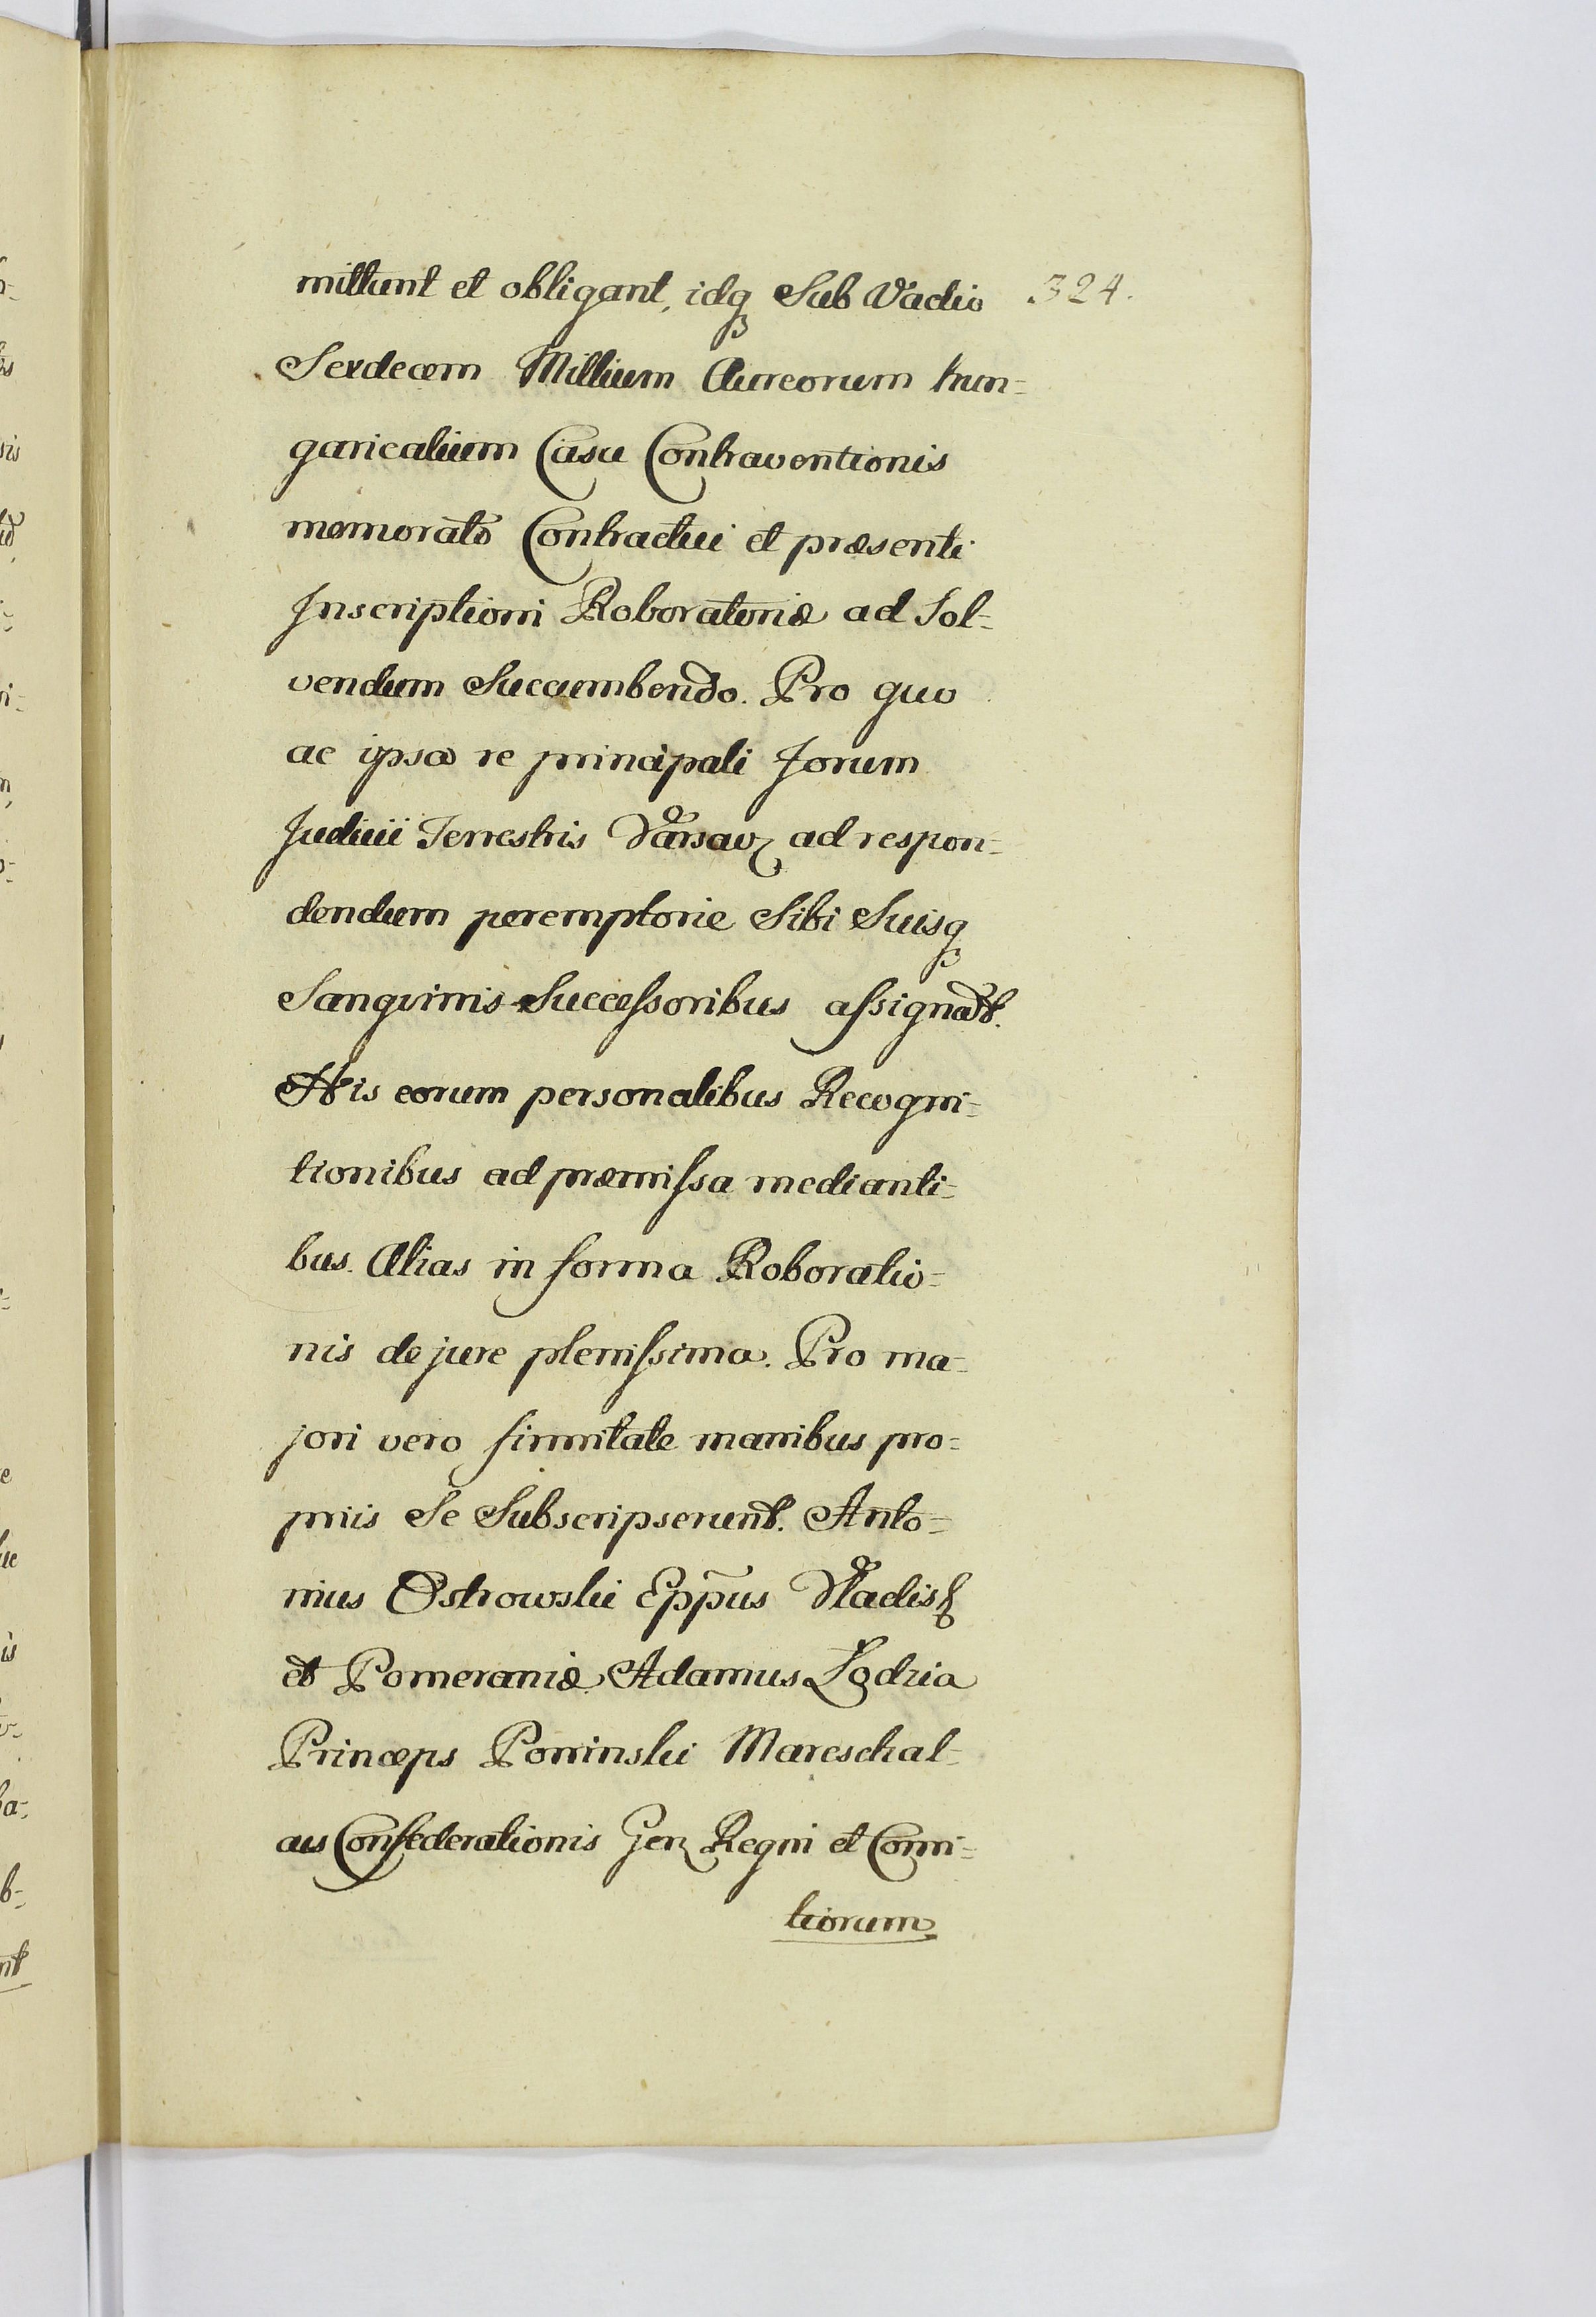 mittunt et obligant, idq Sub Vadio 324.
Sexdecem Millium Aureorum hun=
garicalium Casu Contraventionis
memorato Contractui et præsenti
Inscriptioni Roboratoriæ ad Sol=
vendum Succumbendo. Pro quo
ac ipsa re principali Forum
Judicii Terrestris Varsav ad respon=
dendum peremptorie Sibi Suisq
Sangvinis Successoribus assignant.
His eorum personalibus Recogni=
tionibus ad præmissa medianti=
bus. Alias in forma Roboratio=
nis de jure plenissima. Pro ma=
jori vero firmitate manibus pro=
priis Se Subscripserunt. Anto=
nius Ostrowski Eppus Vladisl
et Pomeraniæ, Adamus Łodzia
Princeps Poninski Mareschal=
cus Confederationis Gen Regni et Comi=
tiorum